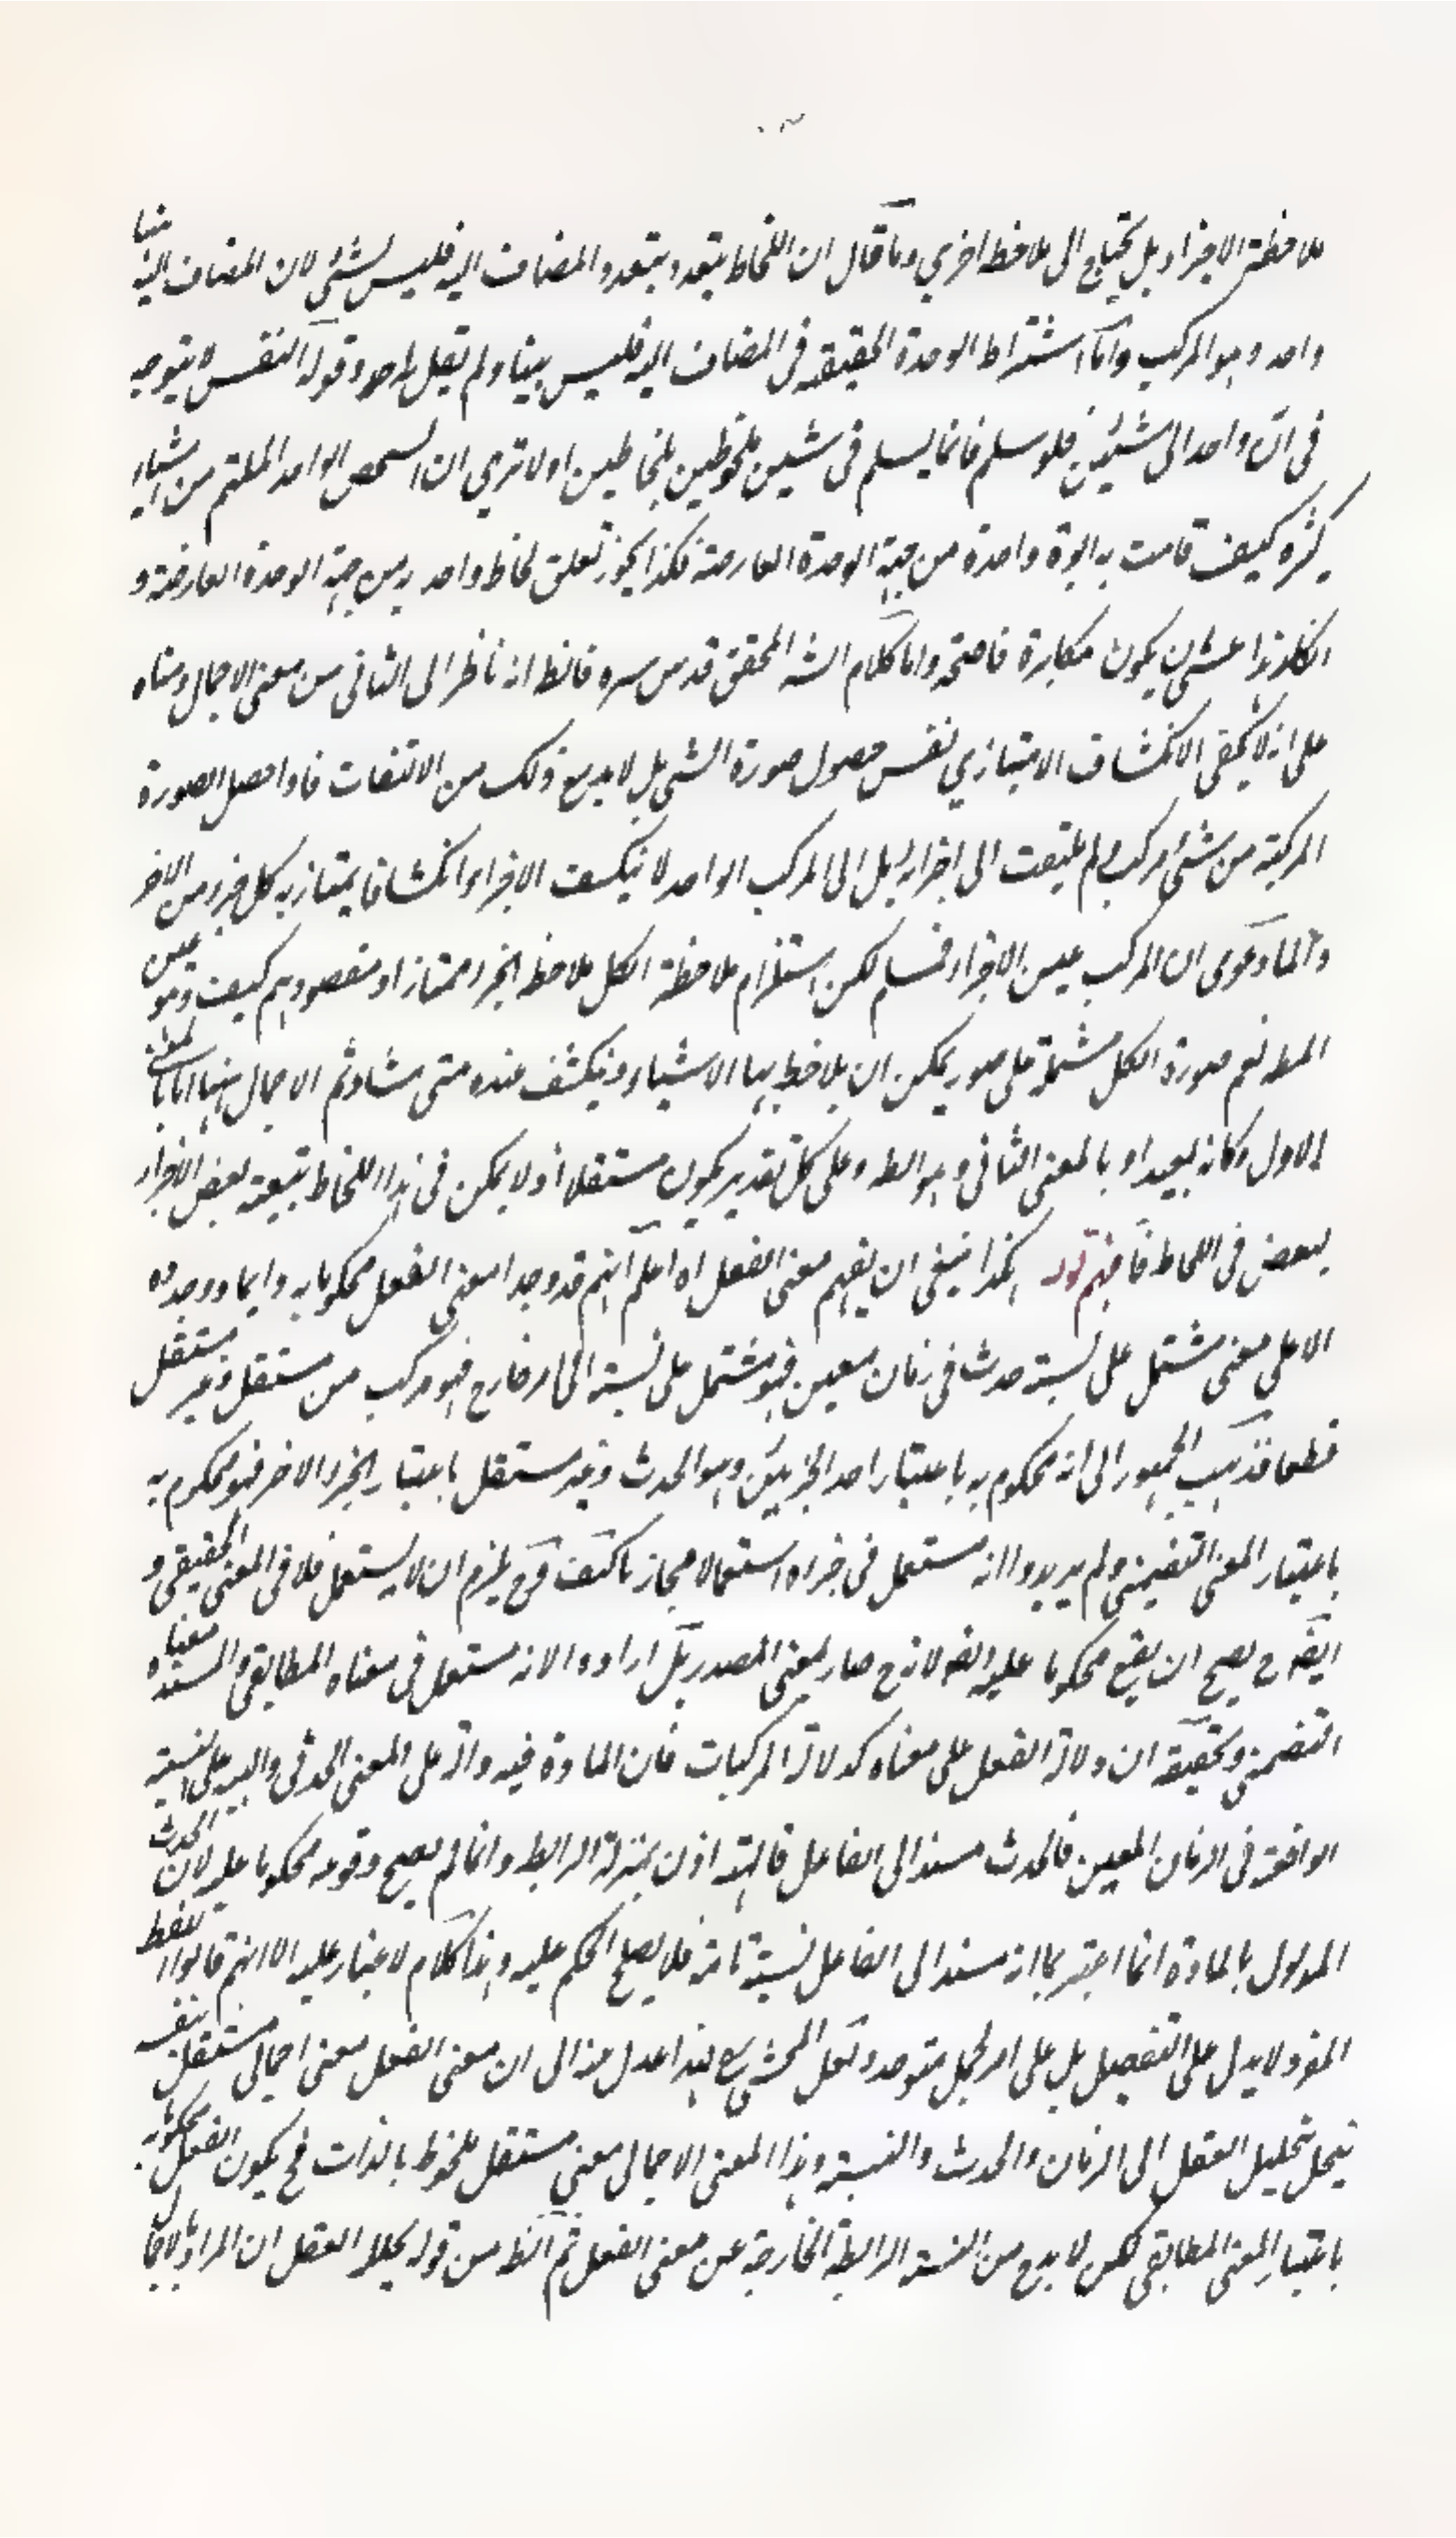 ملاحظة الاجزاء بل يحتاج الى ملاحظة اخرى وما قال ان اللحاظ يتعدد بتعدد المضاف اليه فليس بشئ لان المضاف اليه هنا
واحد وهو المركب واما اشتراط الوحدة الحقيقة فى المضاف اليه فليس بينا ولم يقل به احد وقوله النفس لا يتوجه
فى آن واحد الى شيئين فلو سلم فانما يسلم فى شيئين ملحوظين بلحاظين اولا ترى ان الشخص الواحد الملتئم من اشياء
كثيرة كيف قامت به ابوة واحدة من جهة الوحدة العارضة فكذا يجوز تعلق لحاظ واحد به من جهة الوحدة العارضة و
انكار هذا عسى ان يكون مكابرة فاضحة واما كلام الشه المحقق قدس سره فالظ انه ناظر الى الثانى من معنى الاجمال ومبناه
على انه لا يكفى الانكشاف الامتيازي نفس حصول صورة الشئ بل لا بد مع ذلك من الالتفات فاذا حصل الصورة
المركبة من شئ مركب ولم يلتفت الى اجزائه بل الى المركب الواحد لا ينكشف الاجزاء انكشافا يمتاز به كل جزء من الاخر
واما دعوى ان المركب عين الاجزاء فمسلم لكن استلزام ملاحظة الكل ملاحظة الجزء ممتازا او مقصودا ثم كيف وهو عين
المط نعم صورة الكل مشتملة على صور يمكن ان يلاحظ بها الاشياء وينكشف عنده متى شاء ثم الاجمال ههنا اما بالمعنى
الاول وكانه بعيد او بالمعنى الثانى وهو الظ وعلى كل تقدير يكون مستقلا اذ لا يمكن فى هذا اللحاظ تبعية بعض الاجزاء
لبعض فى اللحاظ فافهم قوله هكذا ينبغى ان يفهم معنى الفعل اه اعلم انهم قد وجدوا معنى الفعل محكوما به وايضا وجدوه
الا على معنى مشتمل على نسبة حدث فى زمان معين فهو مشتمل على نسبة الى امر خارج فهو مركب من مستقل وغير مستقل
قطعا فذهب الجمهور الى انه محكوم به باعتبار احد الجزئين وهو الحدث وغير مستقل باعتبار الجزء الاخر فهو محكوم به
باعتبار المعنى التضمنى ولم يريدوا انه مستعمل فى جزءه استعمالا مجازيا كيف وح يلزم ان لا يستعمل فعلا فى المعنى الحقيقى و
ايضه ح يصح ان يقع محكوما عليه ايضه لانه ح صار لمعنى المصدر بل ارادوا انه مستعمل فى معناه المطابقى والمسند معناه
التضمنى وتحقيقه ان دلالة الفعل على معناه كدلالة المركبات فان المادة فيه دالة على المعنى الحدثى والهيئة على النسبة
الواقعة فى الزمان المعين فالحدث مسند الى الفاعل فالهيئة اذن بمنزلة الرابط وانما لم يصح وقوعه محكوما عليه لان الحدث
المدلول بالمادة انما اعتبر بما انه مسند الى الفاعل نسبة تامة فلا يصلح الحكم عليه وهذا كلام لا غبار عليه الا انهم قالوا اللفظ
المفرد لا يدل على التفصيل بل على امر مجمل متوحد ولعل المحشى رح لهذا عدل عنه الى ان معنى الفعل معنى اجمالى مستقل بنفسه
ينحل بتحليل العقل الى الزمان والحدث والنسبة وهذا المعنى الاجمالى معنى مستقل ملحوظ بالذات فح يكون الفعل محكوما به
باعتبار المعنى المطابقى لكن لا بد ح من النسبة الرابطة الخارجة عن معنى الفعل ثم الظ من قوله يحللها العقل ان المراد بالاجمال